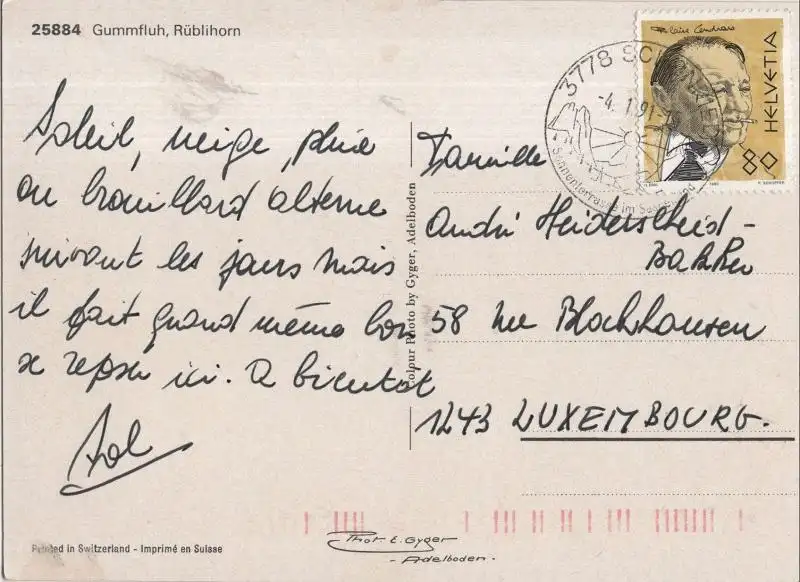 25884 Gummfluh, Rüblihorn
Soleil, neige, pluie
ou brouillard alterne
suivant les jours mais
il fait quand même bon
se repser ici. A bientôt
Colour Photo by Gyger, Adelboden
Famille
André Heiderscheid-
Bakker
58 rue Blochhausen
1243 LUXEMBOURG.
3778 SCHÖNRIED
-4.1.91-
Sonnenterrasse im Saanenland
Blaise Cendrars
HELVETIA
80
Printed in Switzerland - Imprimé en Suisse
Phot E. Gyger
- Adelboden -